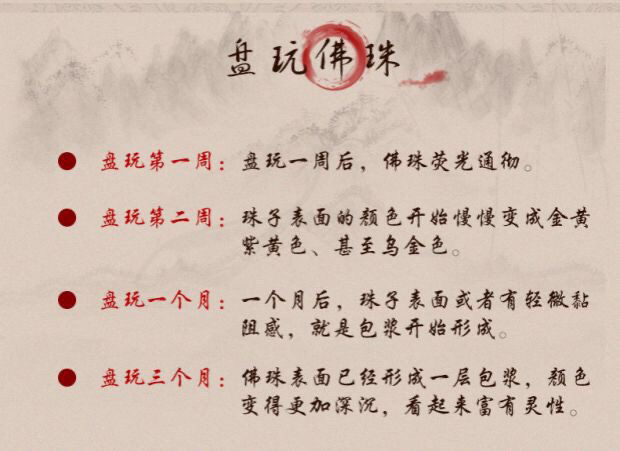 盘玩佛珠
盘玩第一周：盘玩一周后，佛珠荧光通彻。
盘玩第二周：珠子表面的颜色开始慢慢变成金黄
紫黄色、甚至乌金色。
盘玩一个月：一个月后，珠子表面或者有轻微黏
阻感，就是包浆开始形成。
盘玩三个月：佛珠表面已经形成一层包浆，颜色
变得更加深沉，看起来富有灵性。